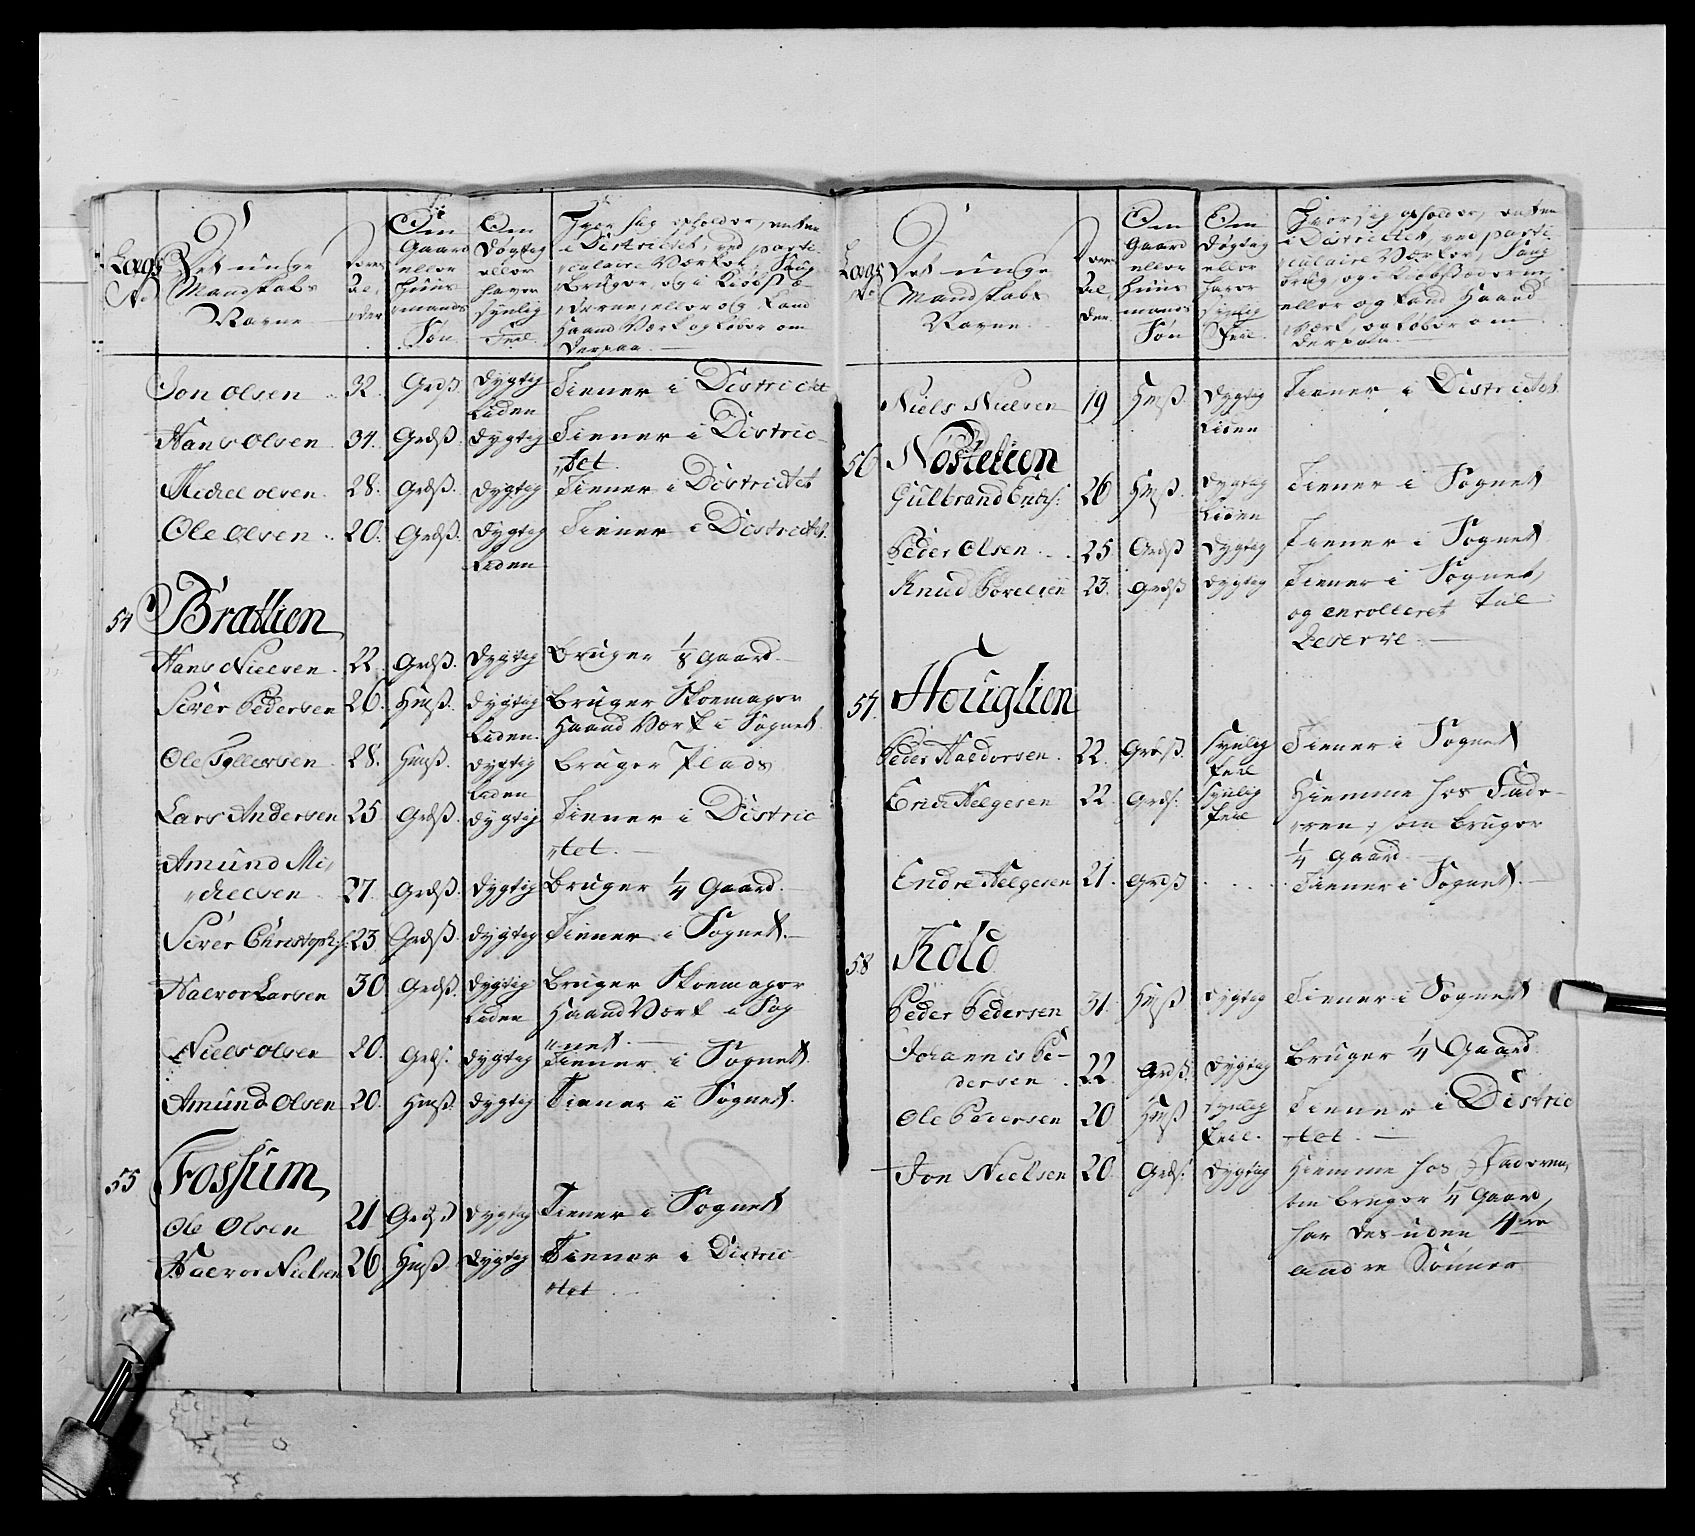 Lægs No
Det unge Mandskabs Navne
Deres Alder
Om Gaard eller Huusmands Søn
Om Dygtig eller haver synlig Feil
Hvor sig opholder, enten i Districtet, ved particulaire Værker, Saugbruger, og i Kiøbstæderne, eller og kand Haand Værk og løber om derpaa.
Jon Olsen 32. Grdß. Dygtig Liden Tiener i Districtet
Hans Olsen 34. Grdß. Dygtig Tiener i Districtet
Michel olsen. 28. Grdß. Dygtig Tiener i Districtet
Ole Olsen 20. Grdß. Dygtig Liden Tiener i Districtet.
54 Brattlien
Hans Nielsen 22. Grdß. Dygtig Bruger 1/8 Gaard.
Siver Pedersen 26. Hmß. Dygtig Liden. Bruger Skoemager Haand Værk i Sognet
Ole 28. Hmß. Dygtig Liden Bruger Plads
Lars Andersen 25 Grdß. Dygtig Tiener i Districtet.
Amund Michelsen 27 Grdß. Dygtig Bruger 1/4 Gaard.
Siver Christoph:s: 23 Grdß. Dygtig Tiener i Sognet.
Halvor Larsen 30 Grdß. Dygtig Liden Bruger Skoemager Haand Værk i Sognet.
Niels Olsen 20. Grds: Dygtig Tiener i Sognet.
Amund Olsen 20. Hmß. Dygtig Tiener i Sognet.
55 Fossum
Ole Olsen 21 Grdß Dygtig Tiener i Sognet
Halvor Nielsen 26 Hmß. Dygtig Tiener i Districtet.
Lægs No
Det unge Mandskabs Navne.
Deres Alder.
Om Gaard eller Huusmands Søn
Om Dygtig eller haver synlig Feil.
Hvor sig opholder, enten i Districtet, ved particulaire Værker, Saugbrug, og i Kiøbstæderne, eller og kand Haand Værk, og løber om derpaa.
Niels Nielsen 19 Hmß Dygtig Liden Tiener i Districtet
56 Nostelien
Gulbrand 26 Hmß. Dygtig Liden Tiener i Sognet
Peder Olsen 25 Grdß Dygtig Tiener i Sognet
Knud 23. Grdß Dygtig Tiener i Sognet,
og enrolleret til
Reserve.
57. Houglien
Peder Haldorsen. 22. Grdß. Synlig Feil Tiener i Sognet
Erich Helgesen 22. Grds: Synlig Feil Hiemme hos Faderen, som bruger
1/4 Gaard.
Endre Helgesen 21. Grdß Tiener i Sognet.
58 Kold
Peder Pedersen 31. Hmß Dygtig Tiener i Sognet
Johannis Pedersen 22 Grdß. Dygtig Bruger 1/4 Gaard.
Ole Pedersen 20 Hmß Synlig Feil. Tiener i Districtet.
Jon Nielsen 20. Grds: Dygtig Hiemme hos Faderen,
som bruger 1/4 Gaard,
har desuden 4re
andre Sønner